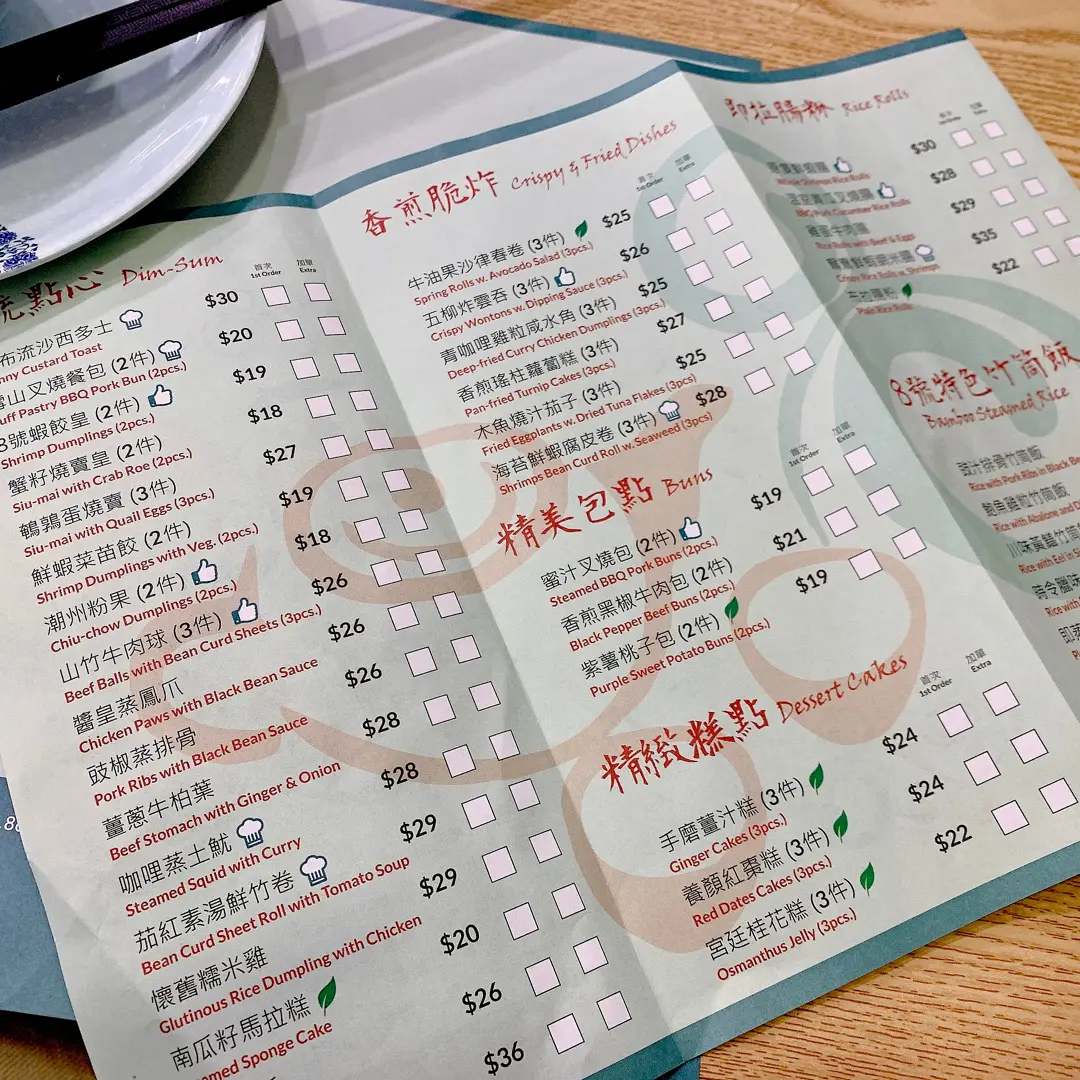 燒點心 Dim-Sum
首次 加單
1st Order Extra
布流沙西多士 $30
Custard Toast
雪山叉燒餐包 (2件) $20
Puff Pastry BBQ Pork Bun (2pcs.)
8號蝦餃皇 (2件) $19
Shrimp Dumplings (2pcs.)
蟹籽燒賣皇 (2件) $18
Siu-mai with Crab Roe (2pcs.)
鵪鶉蛋燒賣 (3件) $27
Siu-mai with Quail Eggs (3pcs.)
鮮蝦菜苗餃 (2件) $19
Shrimp Dumplings with Veg. (2pcs.)
潮州粉果 (2件) $18
Chiu-chow Dumplings (2pcs.)
山竹牛肉球 (3件) $26
Beef Balls with Bean Curd Sheets (3pcs.)
醬皇蒸鳳爪 $26
Chicken Paws with Black Bean Sauce
豉椒蒸排骨 $26
Pork Ribs with Black Bean Sauce
薑蔥牛柏葉 $28
Beef Stomach with Ginger & Onion
咖哩蒸土魷 $28
Steamed Squid with Curry
茄紅素湯鮮竹卷 $29
Bean Curd Sheet Roll with Tomato Soup
懷舊糯米雞 $29
Glutinous Rice Dumpling with Chicken
南瓜籽馬拉糕 $20
Sponge Cake
$26
$36
香煎脆炸 Crispy & Fried Dishes
首次 加單
1st Order Extra
牛油果沙律春卷 (3件) $25
Spring Rolls w. Avocado Salad (3pcs.)
五柳炸雲吞 (3件) $26
Crispy Wontons w. Dipping Sauce (3pcs.)
青咖哩雞粒咸水角 (3件) $25
Deep-fried Curry Chicken Dumplings (3pcs.)
香煎瑤柱蘿蔔糕 (3件) $27
Pan-fried Turnip Cakes (3pcs.)
木魚燒汁茄子 (3件) $25
Fried Eggplants w. Dried Tuna Flakes (3pcs)
海苔鮮蝦腐皮卷 (3件) $28
Shrimps Bean Curd Roll w. Seaweed (3pcs)
精美包點 Buns
首次 加單
1st Order Extra
蜜汁叉燒包 (2件) $19
Steamed BBQ Pork Buns (2pcs.)
香煎黑椒牛肉包 (2件) $21
Black Pepper Beef Buns (2pcs.)
紫薯桃子包 (2件) $19
Purple Sweet Potato Buns (2pcs.)
精緻糕點 Dessert Cakes
首次 加單
1st Order Extra
手磨薑汁糕 (3件) $24
Ginger Cakes (3pcs.)
養顏紅棗糕 (3件) $24
Red Dates Cakes (3pcs.)
宮廷桂花糕 (3件) $22
Osmanthus Jelly (3pcs.)
即拉腸粉 Rice Rolls
首次 加單
1st Order Extra
$30
Whole Shrimps Rice Rolls
$28
BBQ Pork Cucumber Rice Rolls
$29
Rice Rolls with Beef & Eggs
$35
Crisp Rice Rolls w. Shrimps
$22
Plain Rice Rolls
8號特色竹筒飯
Bamboo Steamed Rice
豉汁排骨竹筒飯
Rice with Pork Ribs in Black Bean
鮑魚雞粒竹筒飯
Rice with Abalone and
川味黃鱔竹筒
Rice with Eel in
時令臘味
Rice with